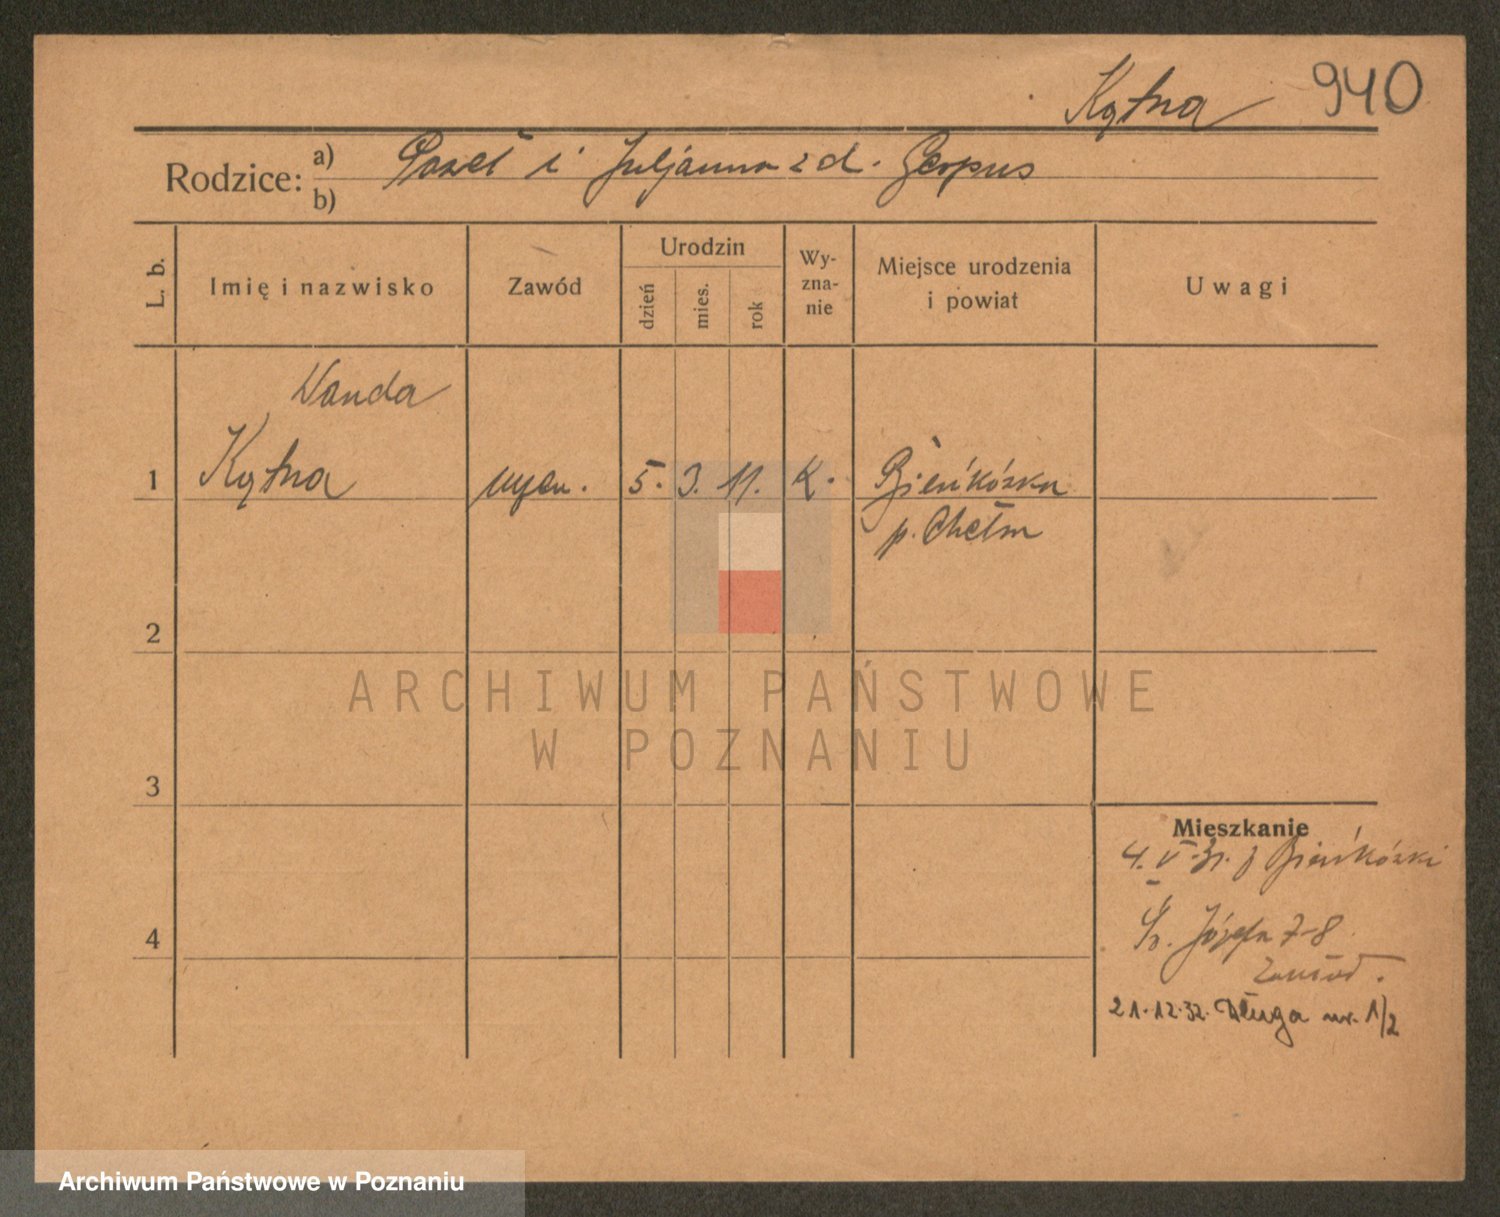 Kątna 940
Rodzice: a) Paweł i Juljanna z d. Gerpus
b)
L. b. Imię i nazwisko Zawód Urodzin dzień mies. rok Wy-zna-nie Miejsce urodzenia i powiat Uwagi
Wanda
1 Kątna 5. 3. 11. k. Bieńkózka
p. Chełm
2
ARCHIWUM PAŃSTWOWE
W POZNANIU
3
Mieszkanie
4. V. 31. z Bieńkózki
4
Św. Józefa 7-8
21.12.32. Długa nr. 1/2
Archiwum Państwowe w Poznaniu